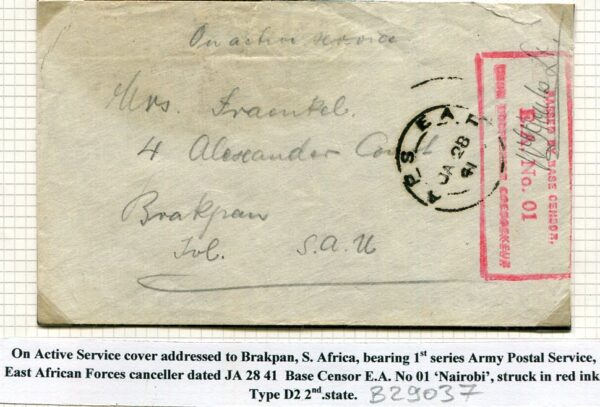 On active service
Mrs. Fraenkel.
4 Alexander Court
Brakpan
Tvl. S.A.U
A.P.S. E.A.F.
JA 28
41
PASSED BY BASE CENSOR,
E.A. No. 01
DEUR BASISSENSOR GOEDGEKEUR
On Active Service cover addressed to Brakpan, S. Africa, bearing 1st series Army Postal Service,
East African Forces canceller dated JA 28 41 Base Censor E.A. No 01 ‘Nairobi’, struck in red ink
Type D2 2nd.state. B29037